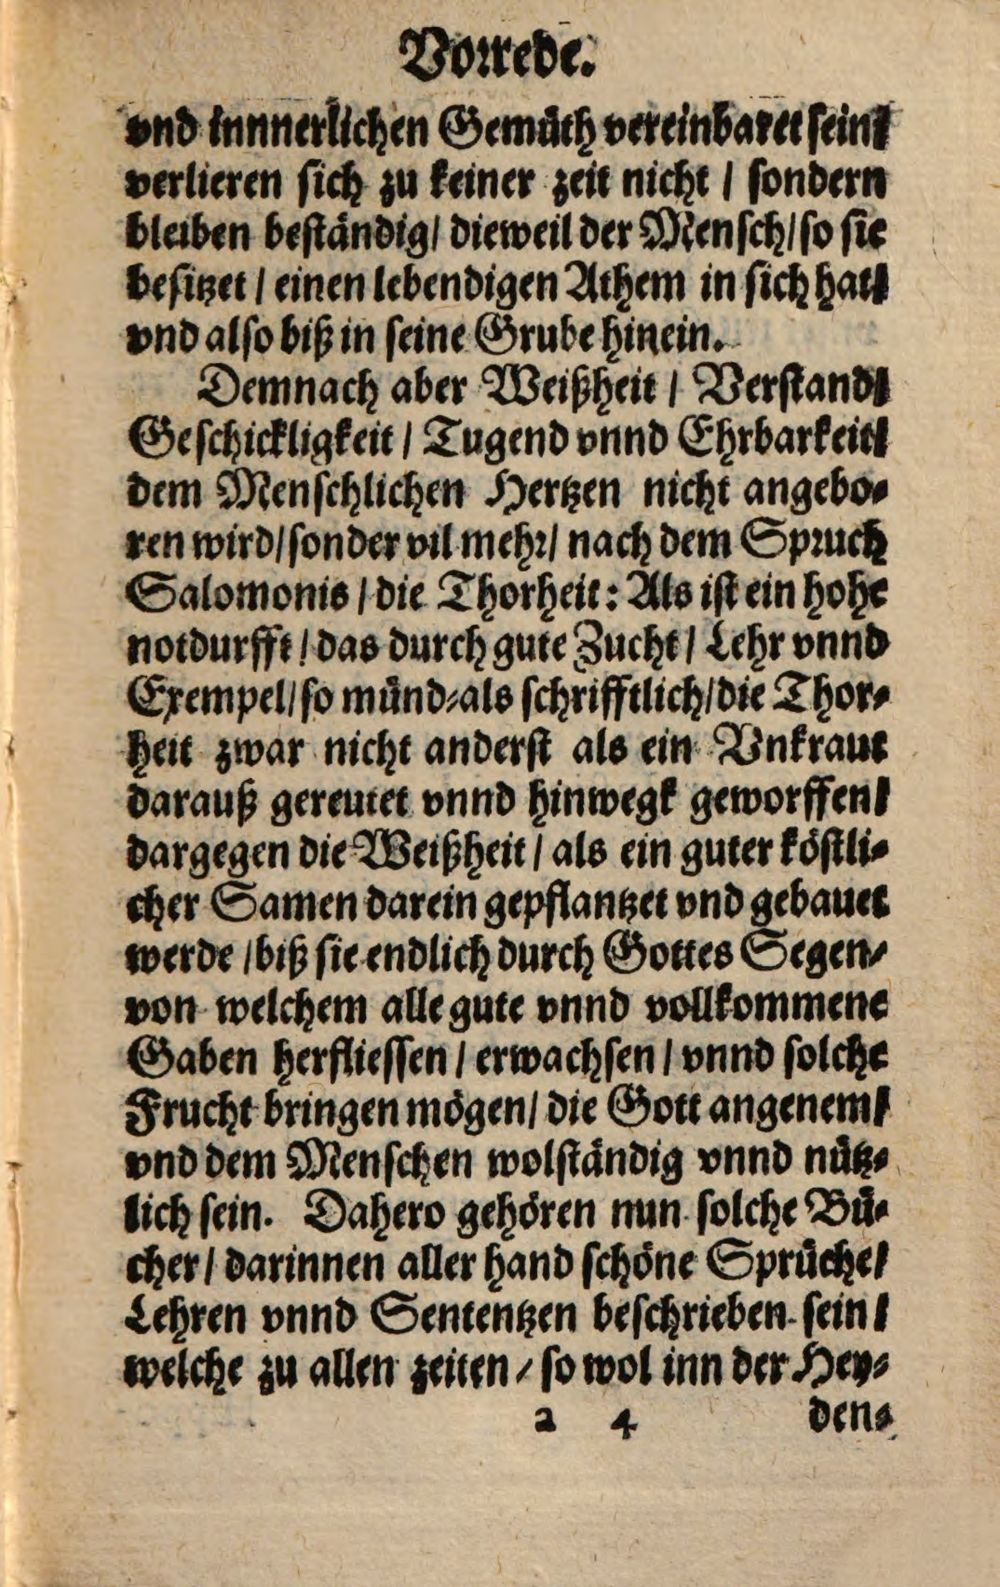 Vorrede.
vnd innnerlichen Gemüth vereinbaret sein/
verlieren sich zu keiner zeit nicht / sondern
bleiben beständig/ dieweil der Mensch/ so sie
besitzet / einen lebendigen Athem in sich hat/
vnd also biß in seine Grube hinein.
Demnach aber Weißheit / Verstand/
Geschickligkeit / Tugend vnnd Ehrbarkeit/
dem Menschlichen Hertzen nicht angebo-
ren wird/ sonder vil mehr/ nach dem Spruch
Salomonis / die Thorheit: Als ist ein hohe
notdurfft / das durch gute Zucht / Lehr vnnd
Exempel/ so münd-als schrifftlich/ die Thor-
heit zwar nicht anderst als ein Vnkraut
darauß gereutet vnnd hinwegk geworffen/
dargegen die Weißheit / als ein guter köstli-
cher Samen darein gepflantzet vnd gebauet
werde / biß sie endlich durch Gottes Segen/
von welchem alle gute vnnd vollkommene
Gaben herfliessen / erwachsen / vnnd solche
Frucht bringen mögen/ die Gott angenem/
vnd dem Menschen wolständig vnnd nütz-
lich sein. Dahero gehören nun solche Bü-
cher / darinnen aller hand schöne Sprüche/
Lehren vnnd Sententzen beschrieben sein/
welche zu allen zeiten / so wol inn der Hey-
a 4 den-